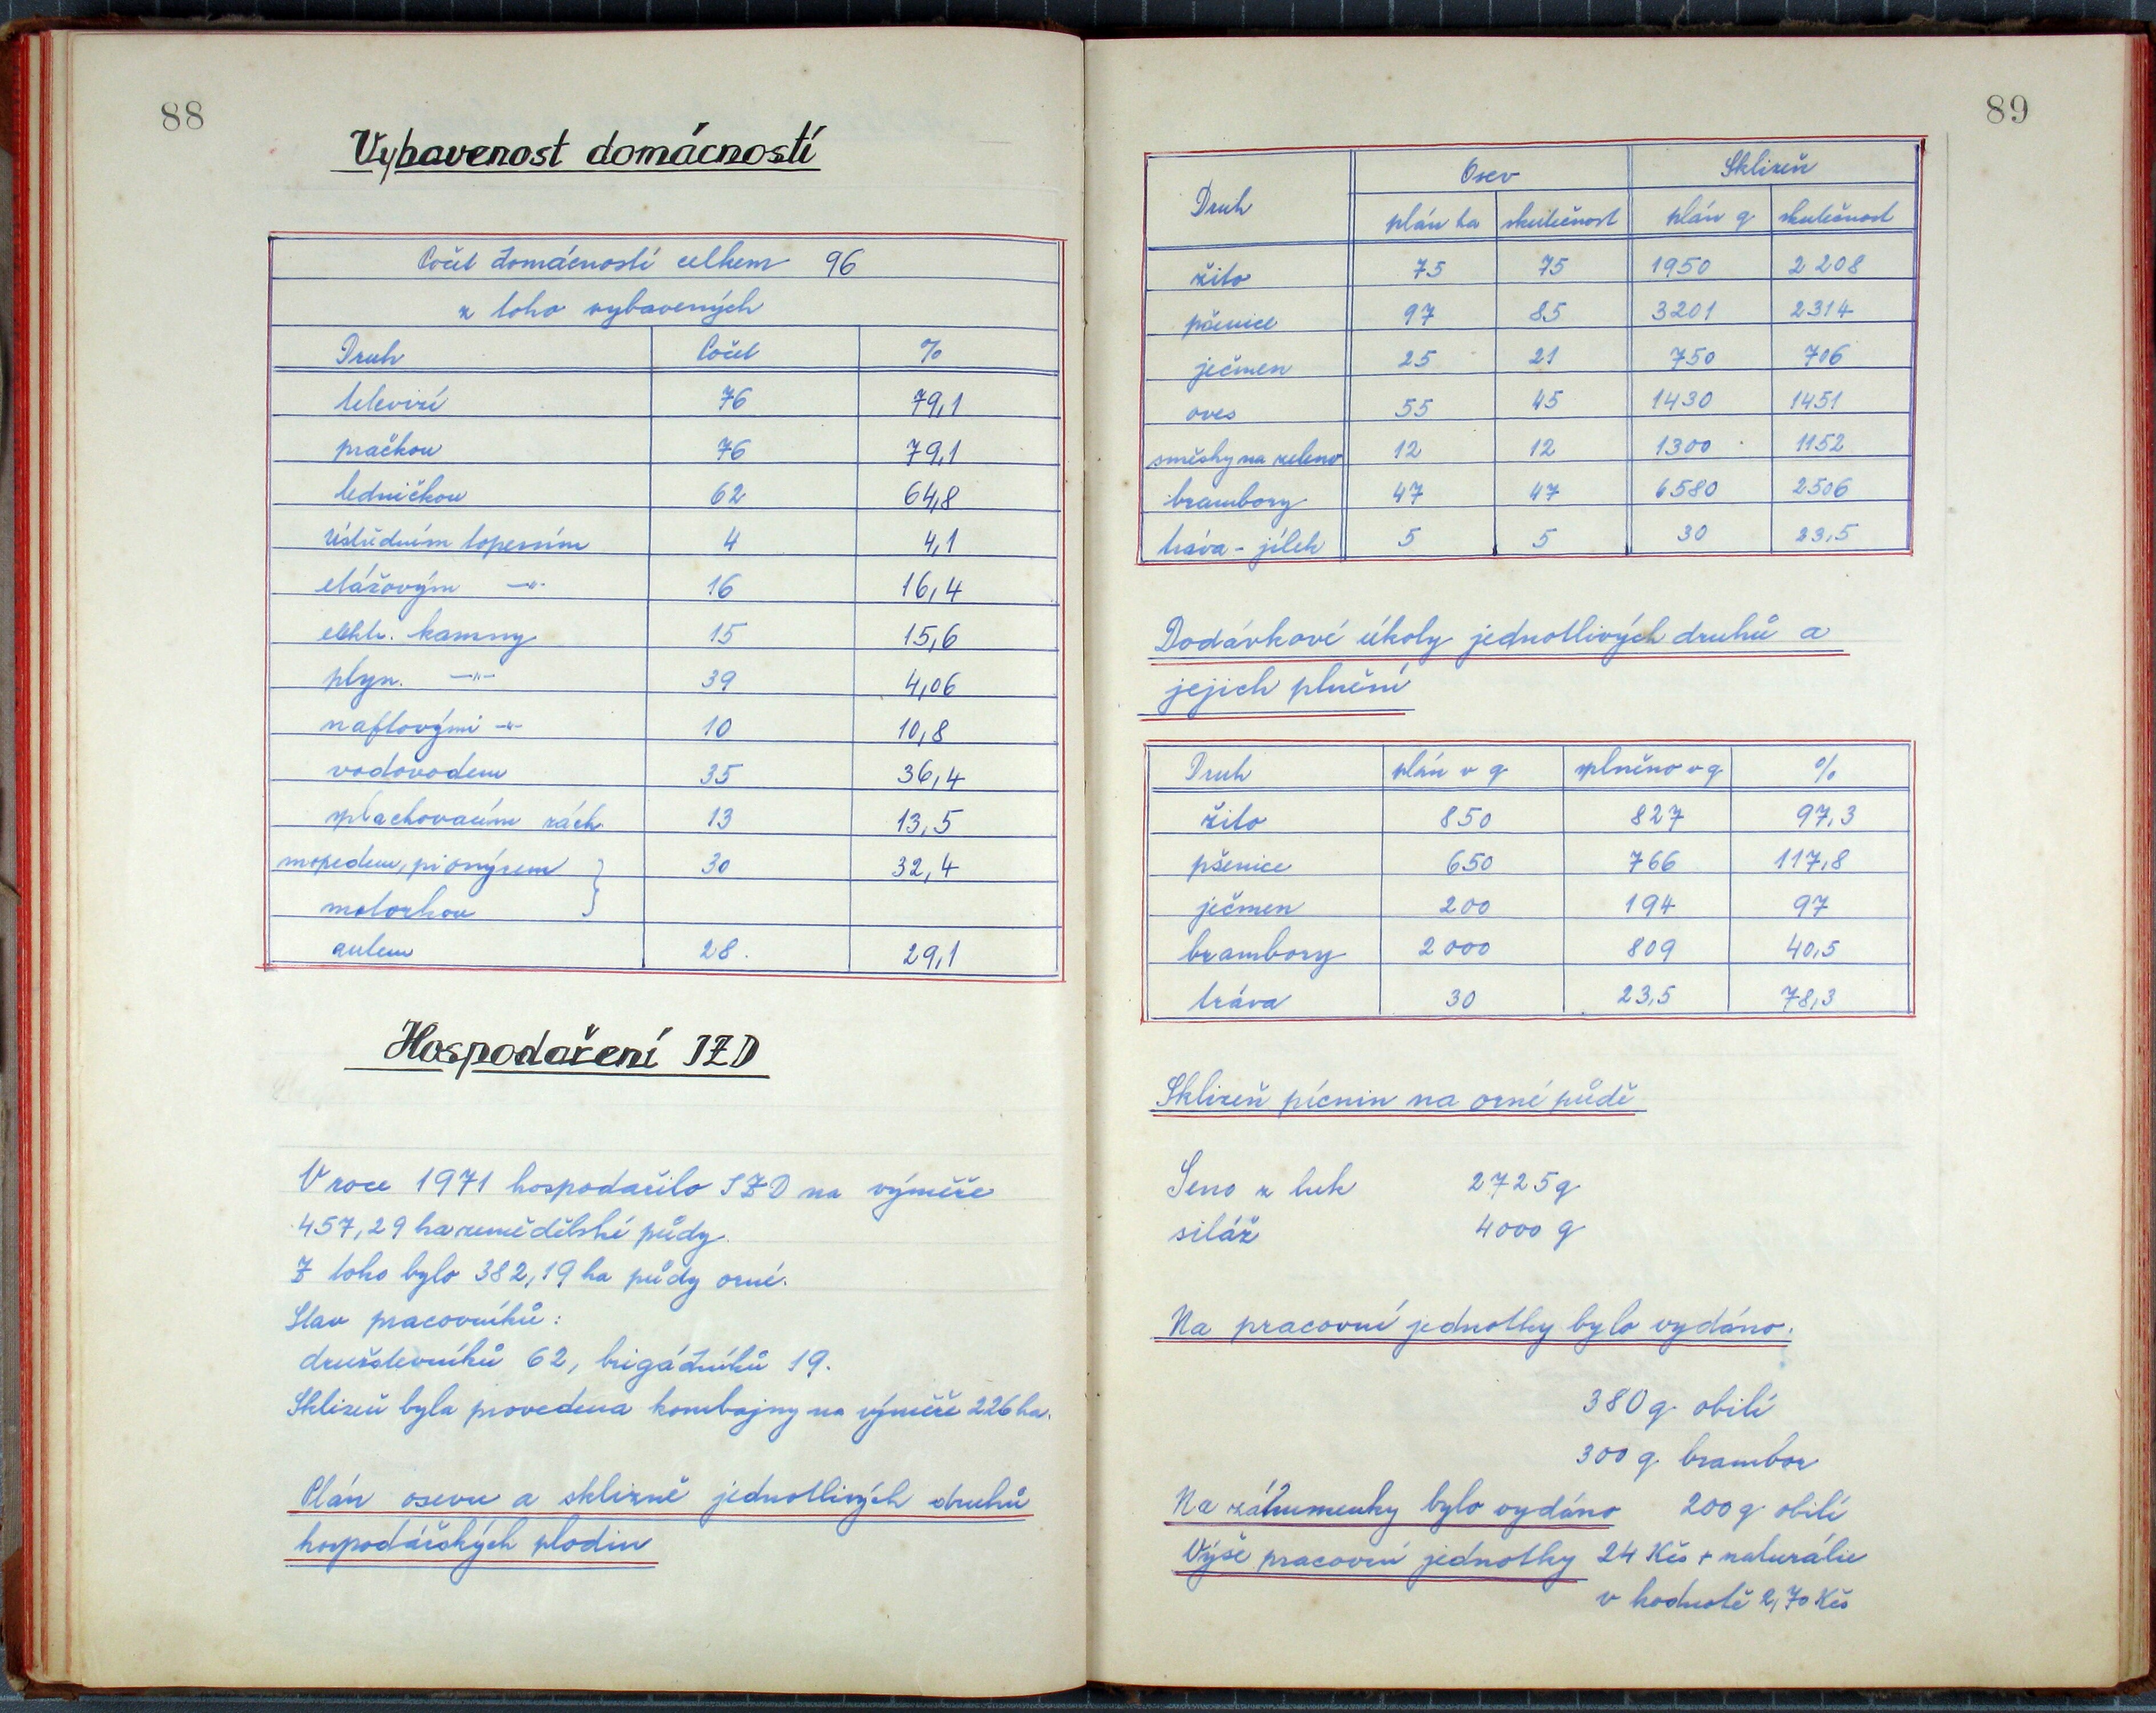 88
Vybavenost domácností
Počet domácností celkem 96
z toho vybavených
Druh Počet %
televizí 76 79,1
pračkou 76 79,1
ledničkou 62 64,8
Ústředním topením 4 4,1
etážovým —"— 16 16,4
elektr. kamny 15 15,6
plyn. —"— 39 4,06
naftovými —"— 10 10,8
vodovodem 35 36,4
splachovacím zách. 13 13,5
mopedem, pionýrem } 30 32,4
motorkou
autem 28. 29,1
Hospodaření JZD
V roce 1971 hospodařilo JZD na výměře
457,29 ha zemědělské půdy.
Z toho bylo 382,19 ha půdy orné.
Stav pracovníků:
družstevníků 62, brigádníků 19.
Sklizeň byla provedena kombajny na výměře 226 ha.
Plán osevu a sklizně jednotlivých druhů
hospodářských plodin
89
Druh Osev Sklizeň
plán ha skutečnost plán q skutečnost
žito 75 75 1950 2 208
pšenice 97 85 3201 2314
ječmen 25 21 750 706
oves 55 45 1430 1451
směsky na zeleno 12 12 1300 1152
brambory 47 47 6580 2506
tráva - jílek 5 5 30 23,5
Dodávkové úkoly jednotlivých druhů a
jejich plnění
Druh plán v q splněno v q %
žito 850 827 97,3
pšenice 650 766 117,8
ječmen 200 194 97
brambory 2 000 809 40,5
tráva 30 23,5 78,3
Sklizeň pícnin na orné půdě
Seno z luk 2725 q
siláž 4000 q
Na pracovní jednotky bylo vydáno:
380 q obilí
300 q brambor
Na záhumenky bylo vydáno 200 q obilí
Výše pracovní jednotky 24 Kčs + naturálie
v hodnotě 2,70 Kčs